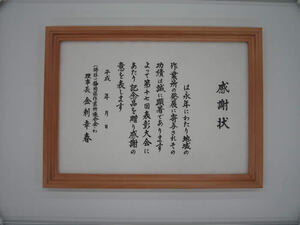 感謝状
は永年にわたり地域の
作業所の発展に寄与されその
功績は誠に顕著であります
よって第十七回表彰大会に
あたり記念品を贈り感謝の
意を表します
平成 年 月 日
理事長 金刺幸春